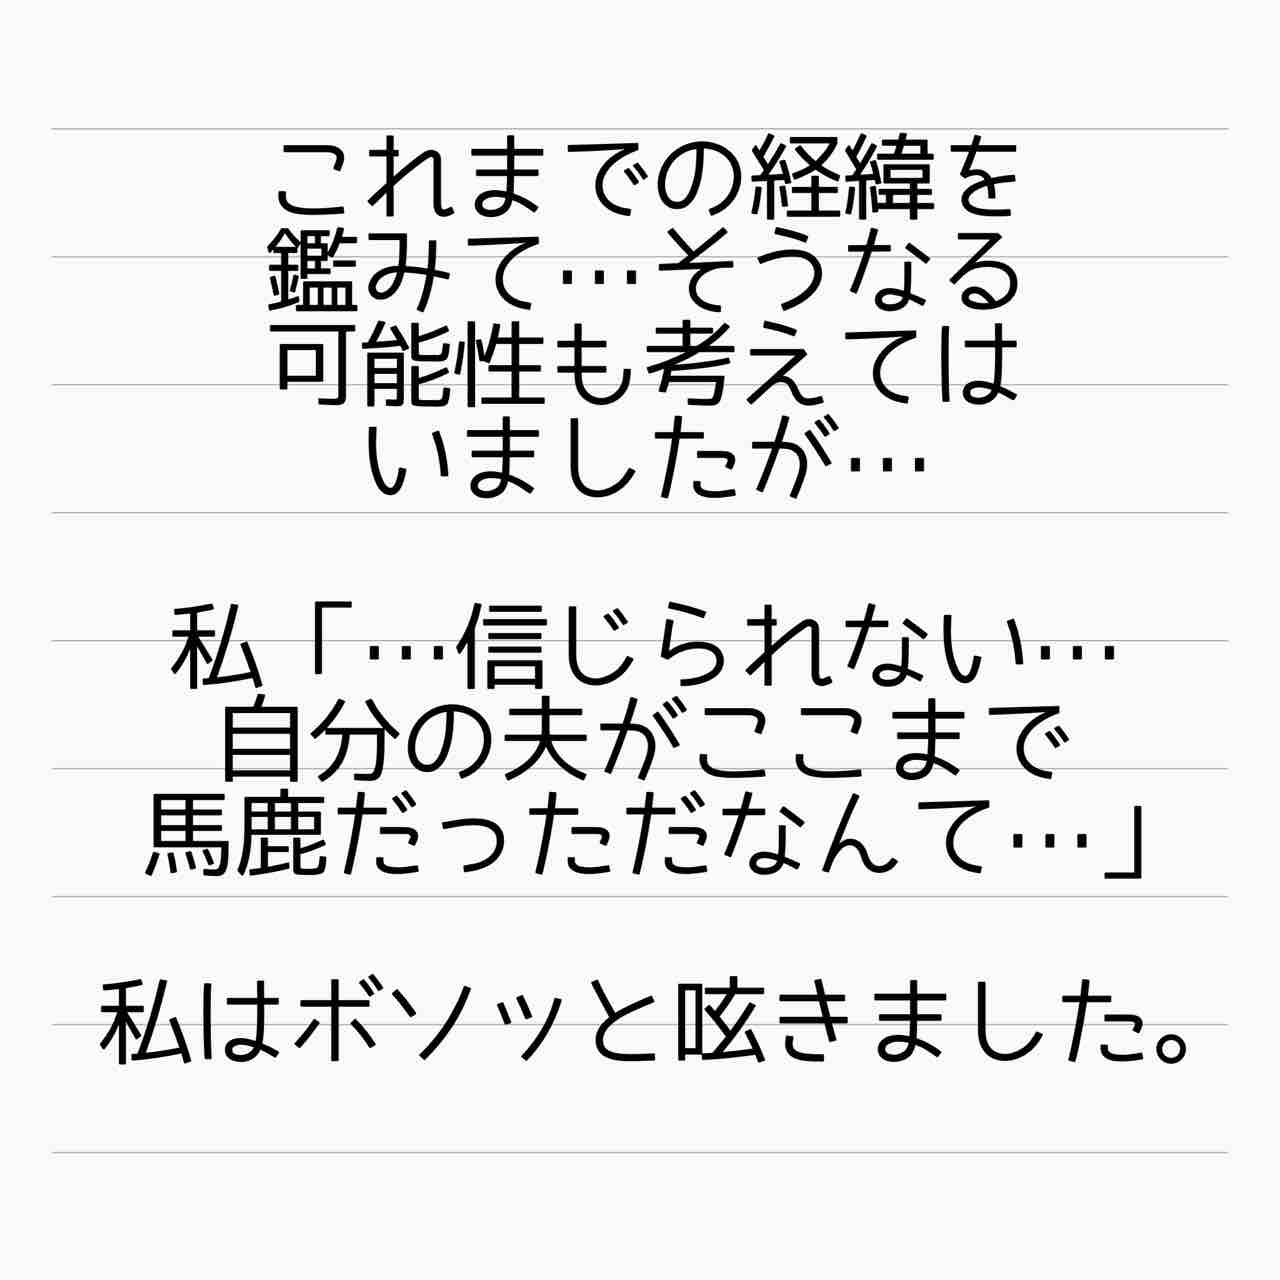 これまでの経緯を
鑑みて…そうなる
可能性も考えては
いましたが…
私「…信じられない…
自分の夫がここまで
馬鹿だっただなんて…」
私はボソッと呟きました。